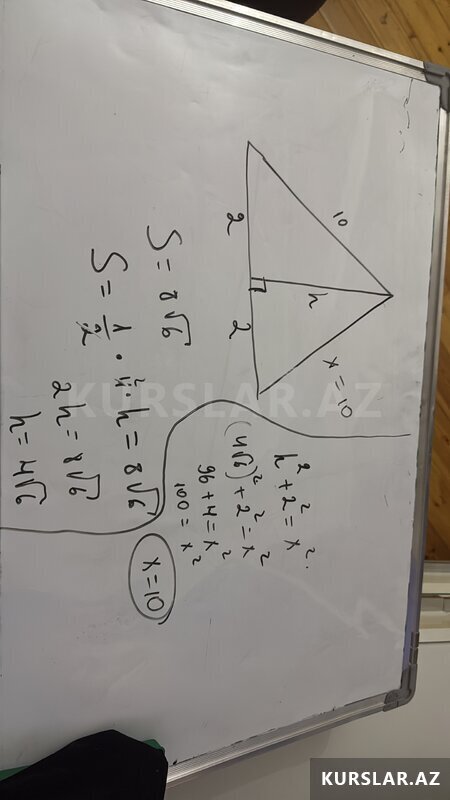 10
h
x = 10
2
2
S = 8√6
S = 1/2 · 4 · h = 8√6
2h = 8√6
h = 4√6
h² + 2² = x²
(4√6)² + 2² = x²
96 + 4 = x²
100 = x²
x = 10
KURSLAR.AZ
KURSLAR.AZ